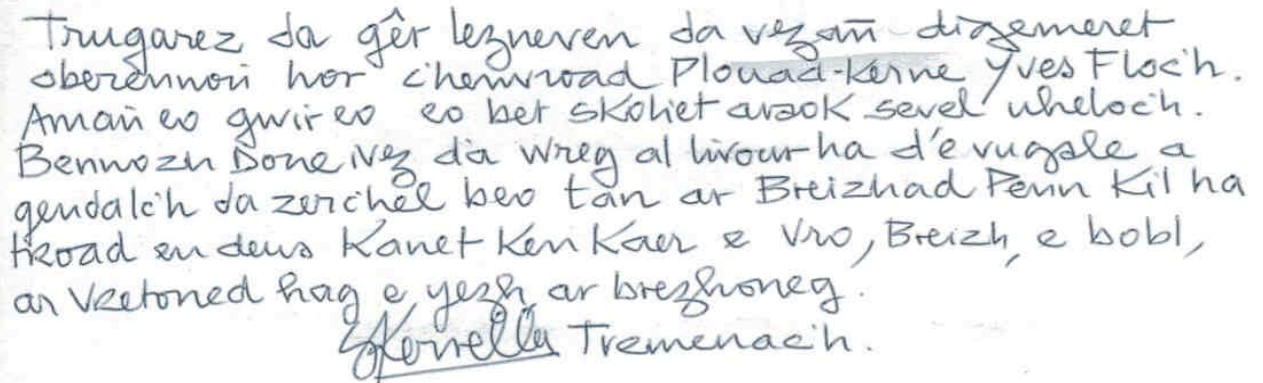 Trugarez da gêr lezneven da vezañ digemeret
oberennoù hor c'henvroad Plouad-Kerne Yves Floc'h.
Amañ eo gwir eo eo bet skoliet araok sevel uheloc'h.
Bennozh Doue ivez d'a wreg al livour ha d'e vugale a
gendalc'h da zerc'hel beo tan ar Breizhad Penn Kil ha
Troad en deus Kanet Ken Kaer e Vro, Breizh, e bobl,
ar Vretoned hag e yezh ar brezhoneg.
Tremenac'h.